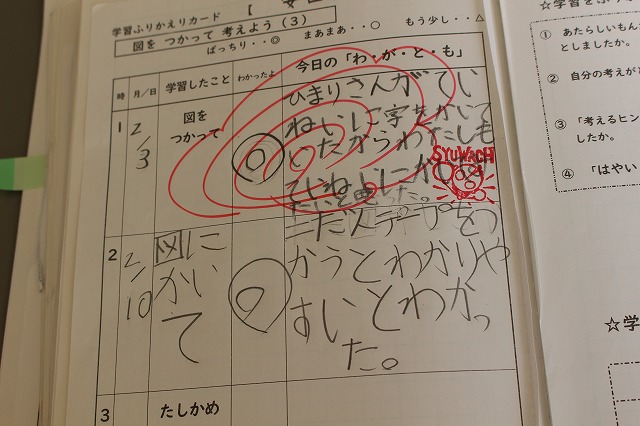 学習ふりかえりカード 【
図を つかって 考えよう(3)
ばっちり・・◎ まあまあ・・○ もう少し・・△
時 月/日 学習したこと わかったよ 今日の「わ・が・と・も」
1 2/3 図を つかって ◎
ひまりさんがてい
ねいに字をかいて
いたからわたしも
ていねいにかき
たいと思った。
SYUWACH
2 2/10 図にかいて ○
二だんテープをつ
かうとわかりや
すいとわかっ
た。
3 たしかめ
☆学習をふり
① あたらしいもん
としましたか。
② 自分の考えが
③ 「考えるヒン
したか。
④ 「はやい
☆学